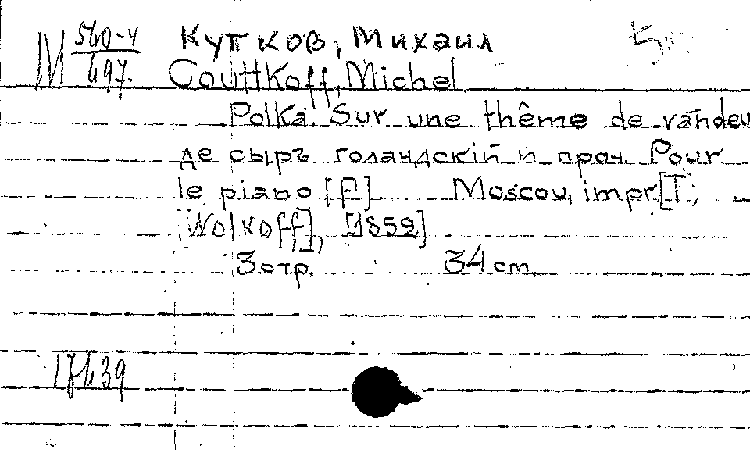 М 560-4/697. Кутков, Михаил
Couttkoff, Michel
Polka. Sur une thême de vandeu
де сыръ голандскій и проч. Pour
le piano [f] Moscou, impr[T.
Wolkoff], [1859]
3 стр. 34 cm.
17639